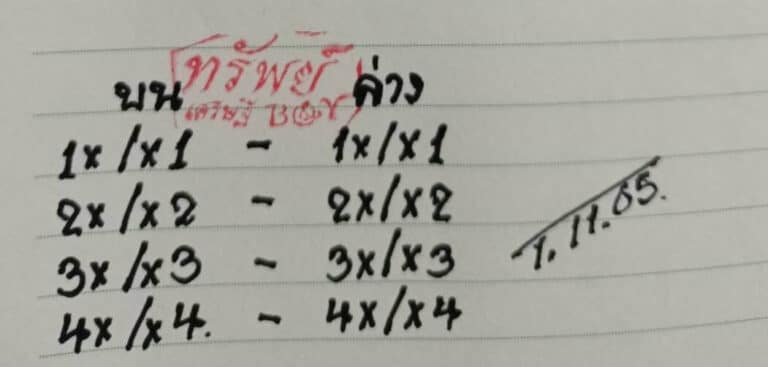 ทรัพย์
บน ล่าง
เศรษฐี BOY
1x/x1 - 1x/x1
2x/x2 - 2x/x2
3x/x3 - 3x/x3
4x/x4. - 4x/x4
1.11.65.